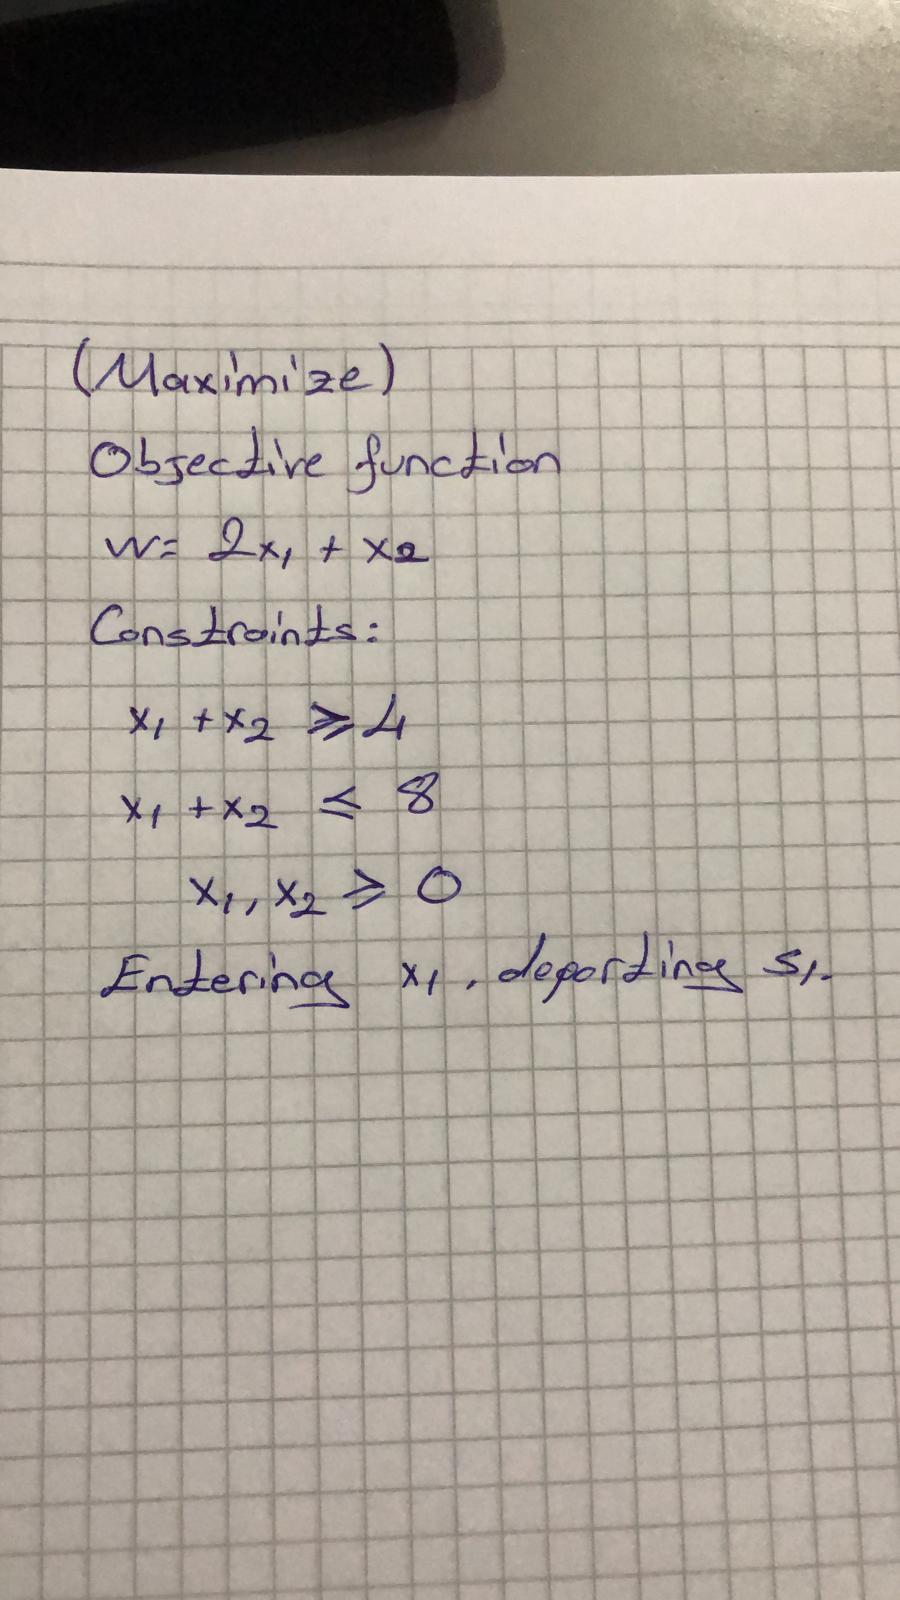 (Maximize)
Objective function
W= 2x₁ + x₂
Constraints:
x₁ + x₂ ≥ 4
x₁ + x₂ ≤ 8
x₁, x₂ ≥ 0
Entering x₁, departing s₁.